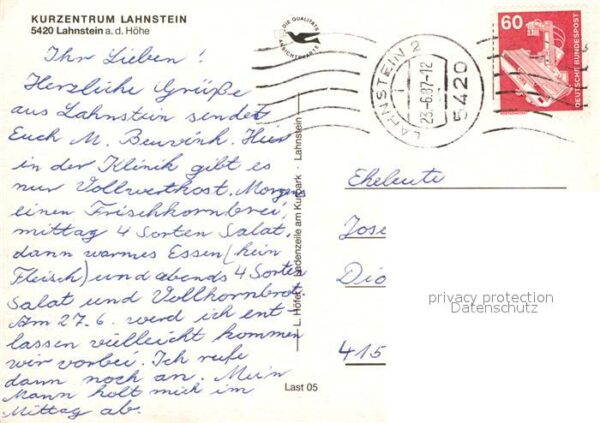 KURZENTRUM LAHNSTEIN
5420 Lahnstein a. d. Höhe
Ihr Lieben!
Herzliche Grüße
aus Lahnstein sendet
Euch M. Beuvink. Hier
in der Klinik gibt es
nur Vollwertkost. Morgens
einen Frischkornbrei,
mittag 4 Sorten Salat,
dann warmes Essen (kein
Fleisch) und abends 4 Sorten
Salat und Vollkornbrot
Am 27.6. werd ich ent-
lassen vielleicht kommen
wir vorbei. Ich rufe
dann noch an. Mein
Mann holt mich im
Mittag ab.
DIE QUALITÄTS
ANSICHTSKARTE
L. Höfer · Ladenzeile am Kurpark · Lahnstein
Last 05
LAHNSTEIN 2
1
23.-6.87-12
5420
60
DEUTSCHE BUNDESPOST
Eheleute
Jose
Dio
415
privacy protection
Datenschutz